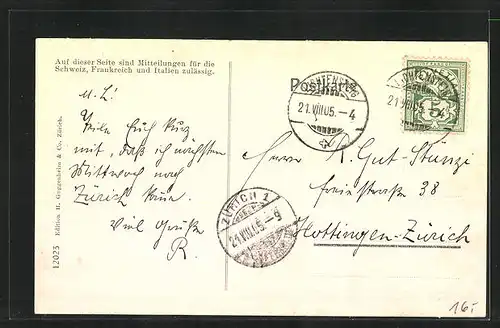 Auf dieser Seite sind Mitteilungen für die
Schweiz, Frankreich und Italien zulässig.
Postkarte
LICHTENSTEIG
21.VIII.05.–4
LICHTENSTEIG
21.VIII.05.–4
5
M. L!
Teile Euch kurz
mit, daß ich nächsten
Mittwoch nach
Zürich
Viel Grüße
R.
Herrn K. Gut-Stünzi
Freiestraße 38
Hottingen-Zürich
ZÜRICH 1
21.VIII.05.–9
Edition H. Guggenheim & Co., Zürich.
12023
16.-